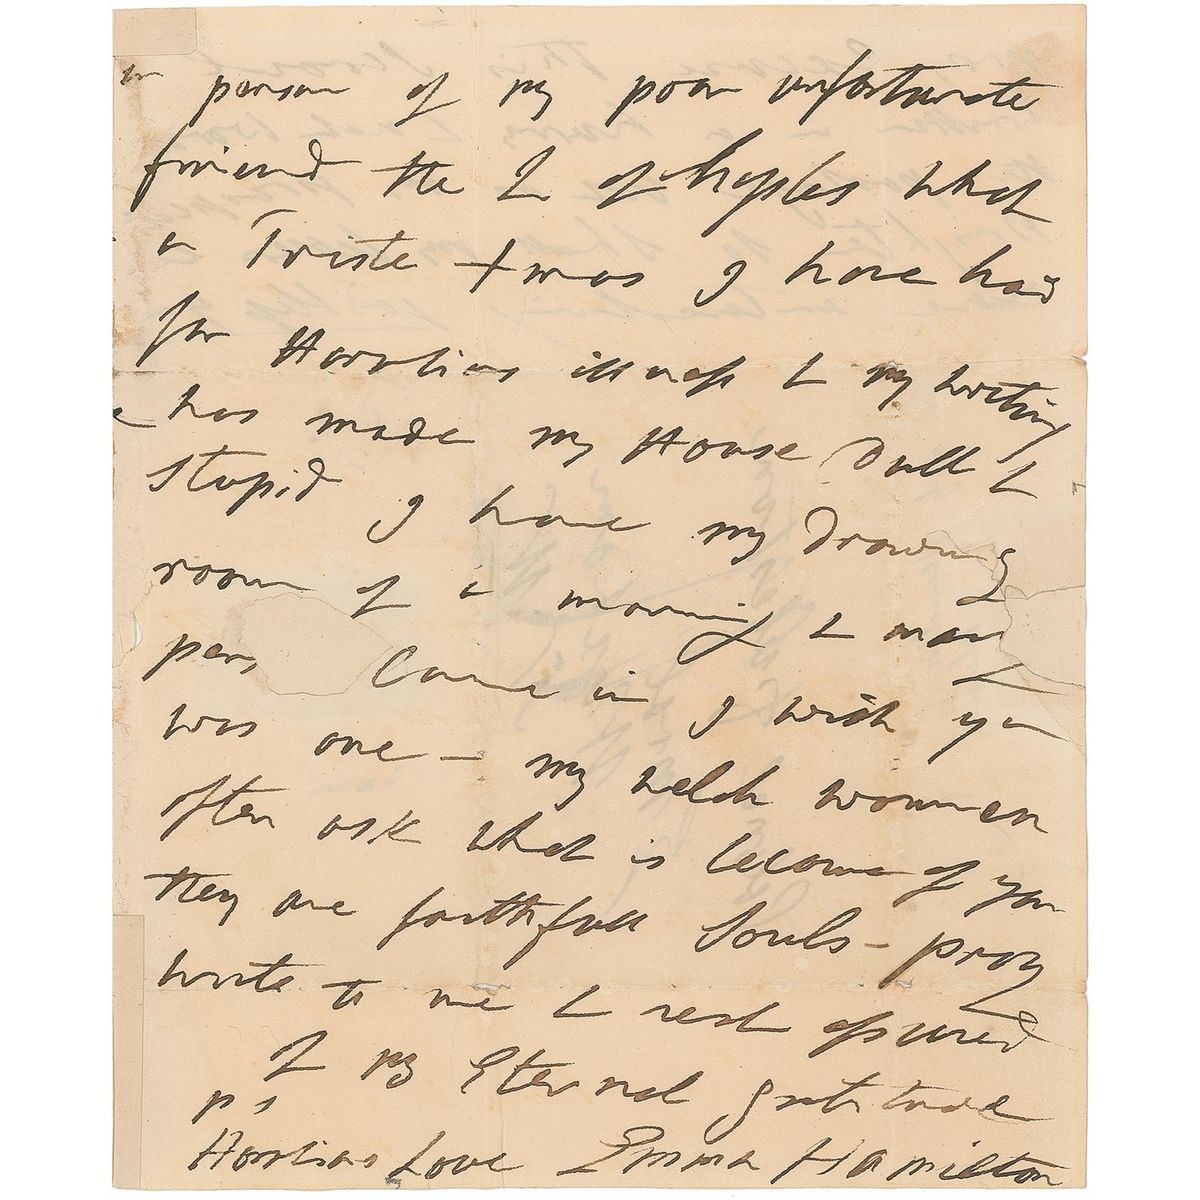 person of my poor unfortunate
friend the Q of Naples what
a Triste Xmas I have had
for Horatias illness & my writing
has made my House Dull &
stupid I have my Drawing
room of a morning & many
pers came in I wish you
was one – my welch women
often ask what is become of you
they are faithfull Souls – pray
write to me & rest assured
of my Eternal gratitude
ps
Horatias Love Emma Hamilton